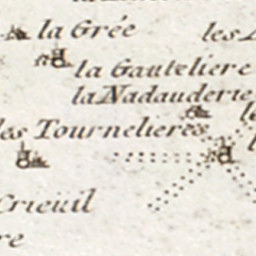 la Grée
les
la Gauteliere
la Nadauderie
les Tournelieres
Crieuil
re